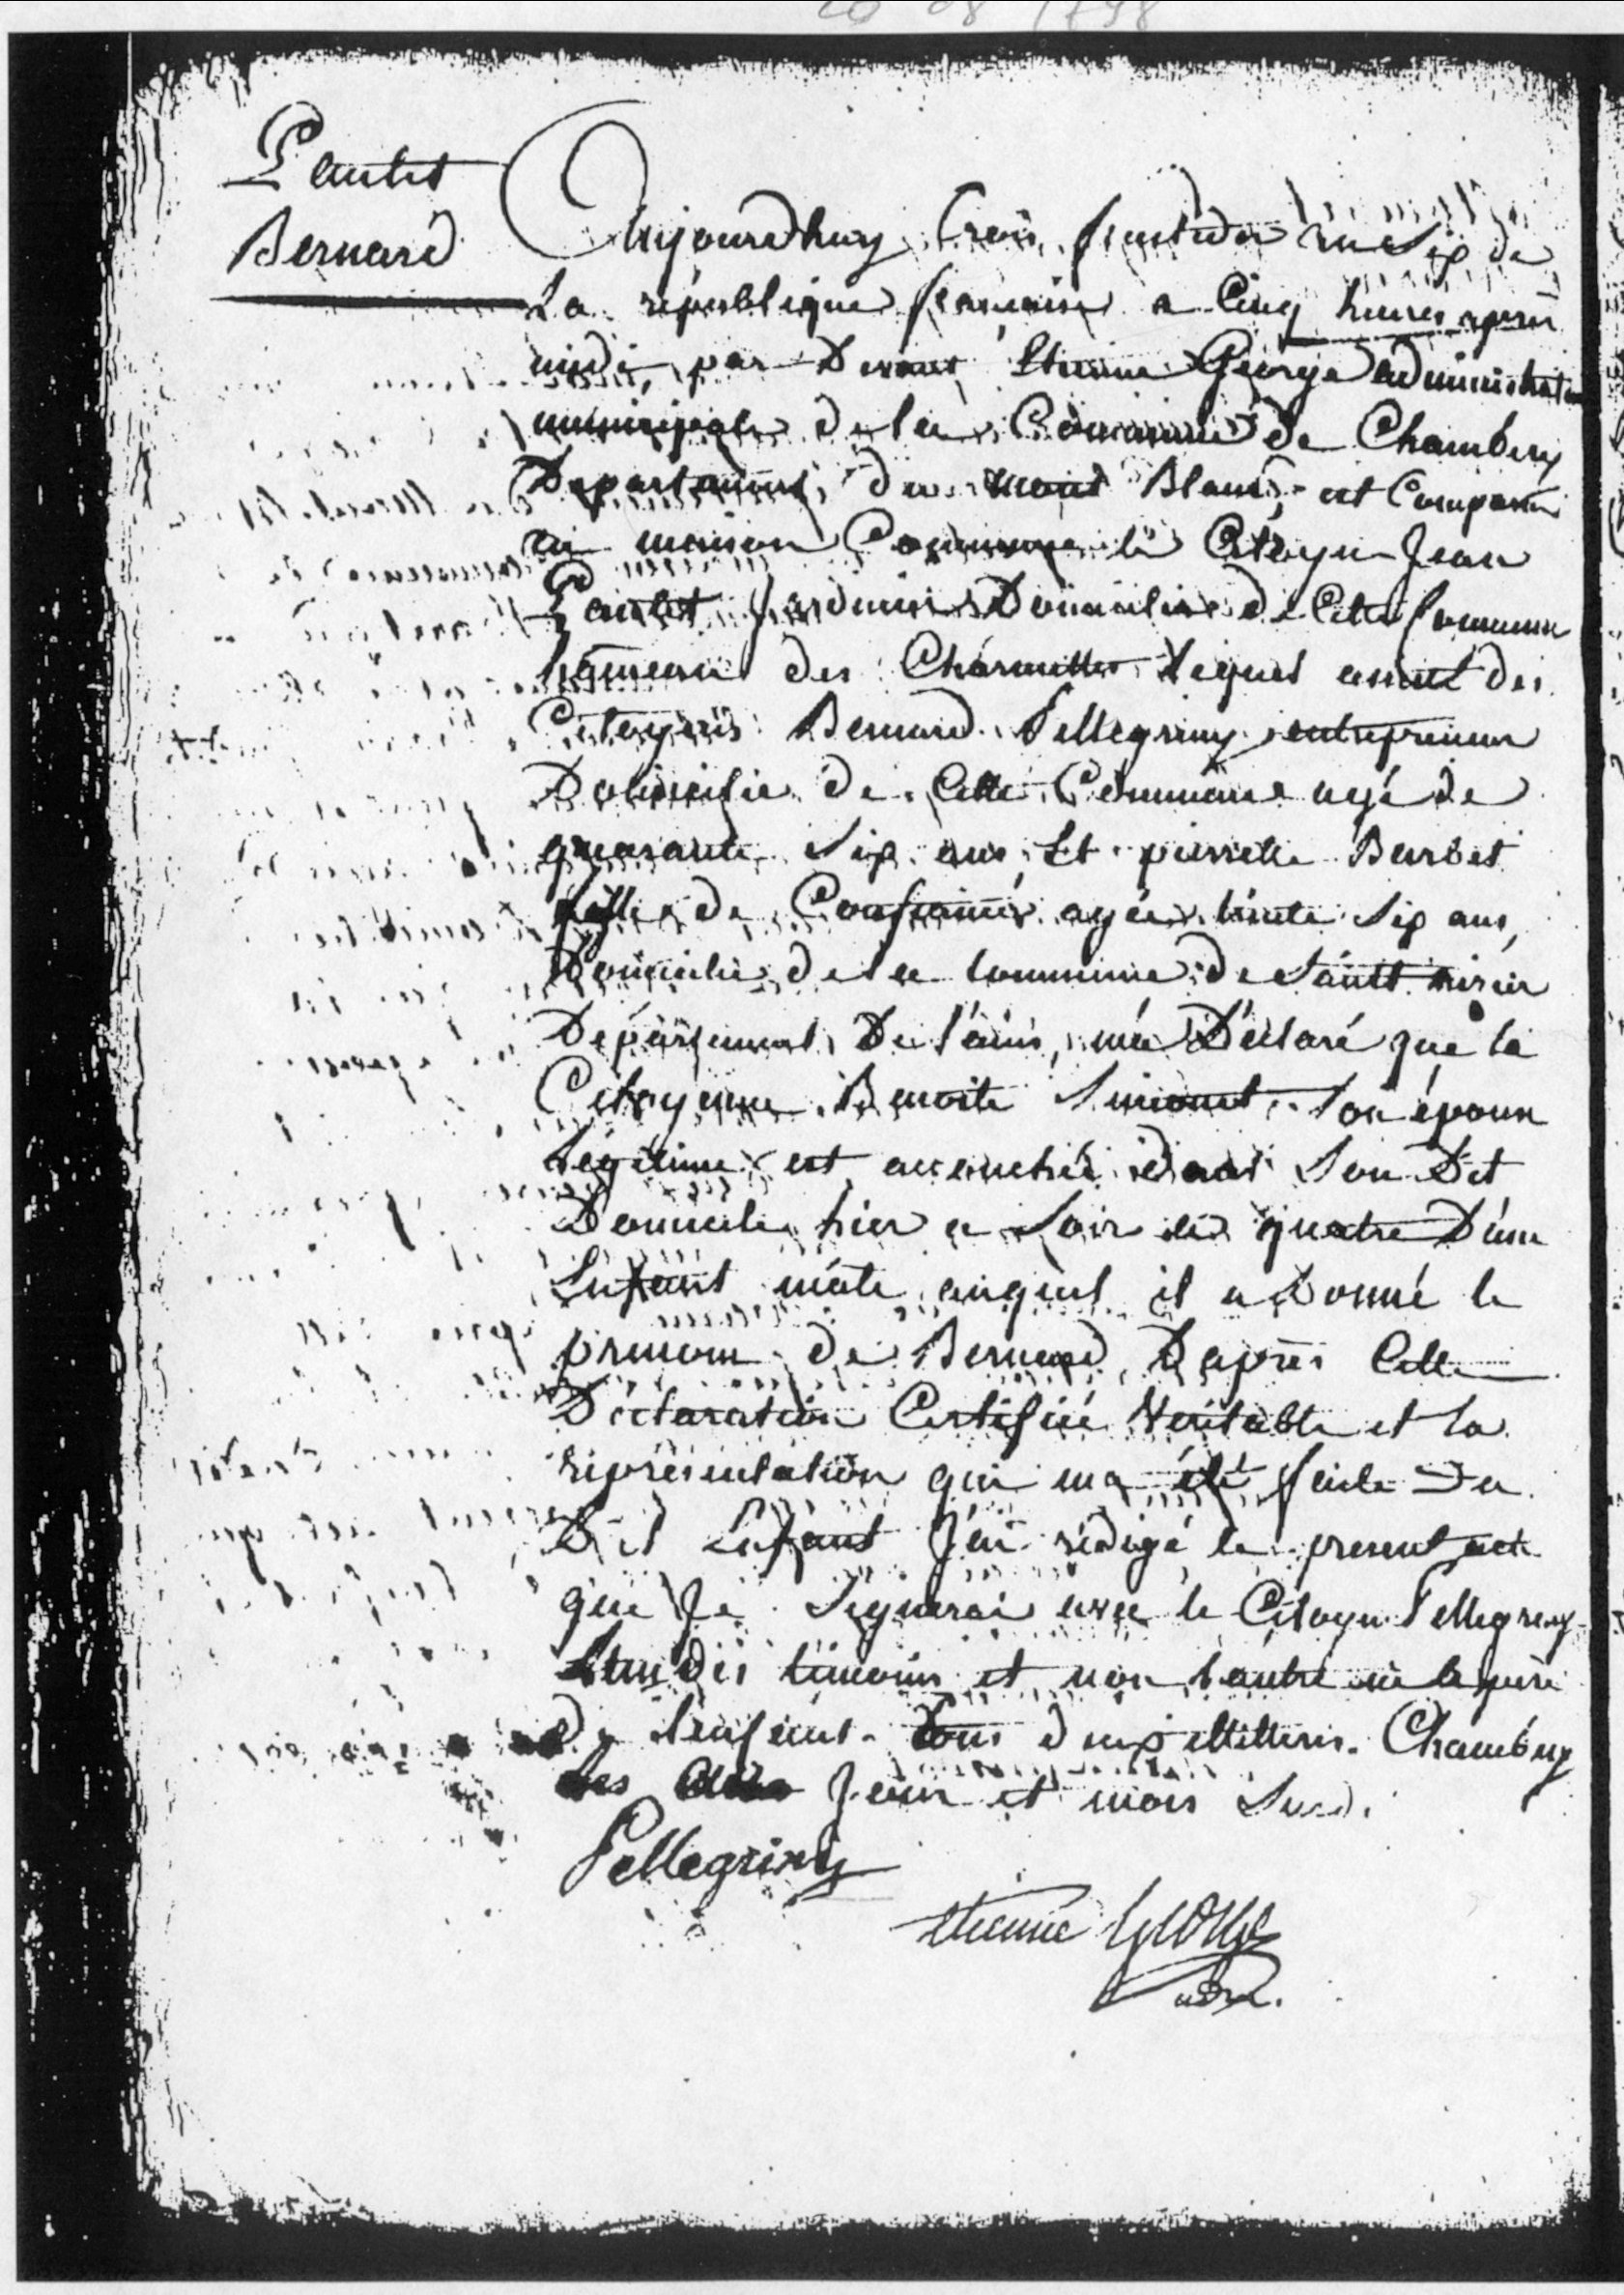 20 08 1798
Pautet
Bernard
Aujourdhuy trois fructidor an Six de
La republique francaise a Cinq heures apres
midi, par Devant Etienne George administrateur
municipale de la Commune de Chambery
Departement du mont Blanc, est Comparu
en maison Commune le Citoyen Jean
Pautet Jardinier Domicilié de Cette Commune
hameau des Charmettes lequel assisté des
Citoyens Bernard Pellegriny entrepreneur
Domicilié de Cette Commune agé de
quarante Six ans, Et pierrette Barbet
fille de Confiance agée trente Six ans,
Domicilié de la Commune de Saint
Département De l'ain, m'a Déclaré que la
Citoyenne Benoite Simonet, Son épouse
légitime est accouchée dans Son Dit
Domicile hier a Soir a quatre D'une
Enfant mâle auquel il a Donné le
prenom de Bernard, D'apres Cette
Déclaration Certifiée Veritable et la
représentation qui m'a été faite Du
Dit Enfant J'ai rédigé le present acte
que Je Signerai avec le Citoyen Pellegriny
L'un des temoins et non l'autre ni le père
De l'enfant. tous deux illitterés. Chambery
les Jour et mois Susd.
Pellegriny
etienne George
adm.